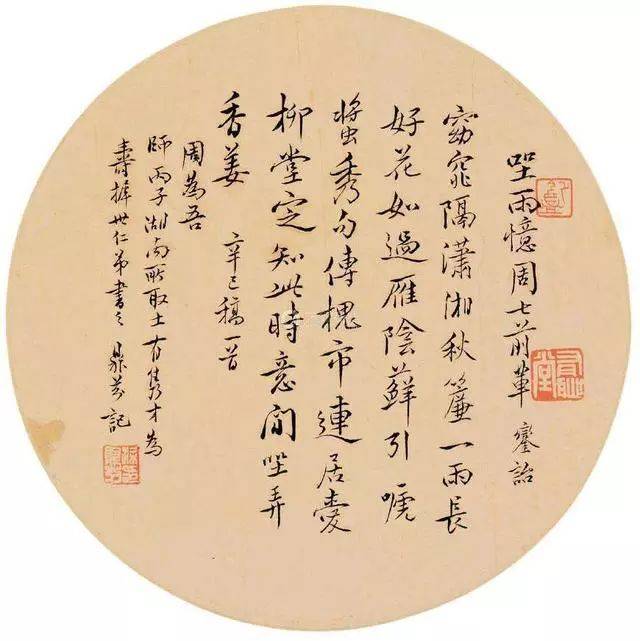 坐雨憶周七前輩 鑾詒
窈窕隔瀟湘秋簾一雨長
好花如過雁陰蘚引嗁
螿秀句傳槐市連居愛
柳堂定知此時意閒坐弄
香姜 辛巳稿一首
周為吾
師丙子湖南所取士有雋才為
壽世仁弟書之 鼎芬記